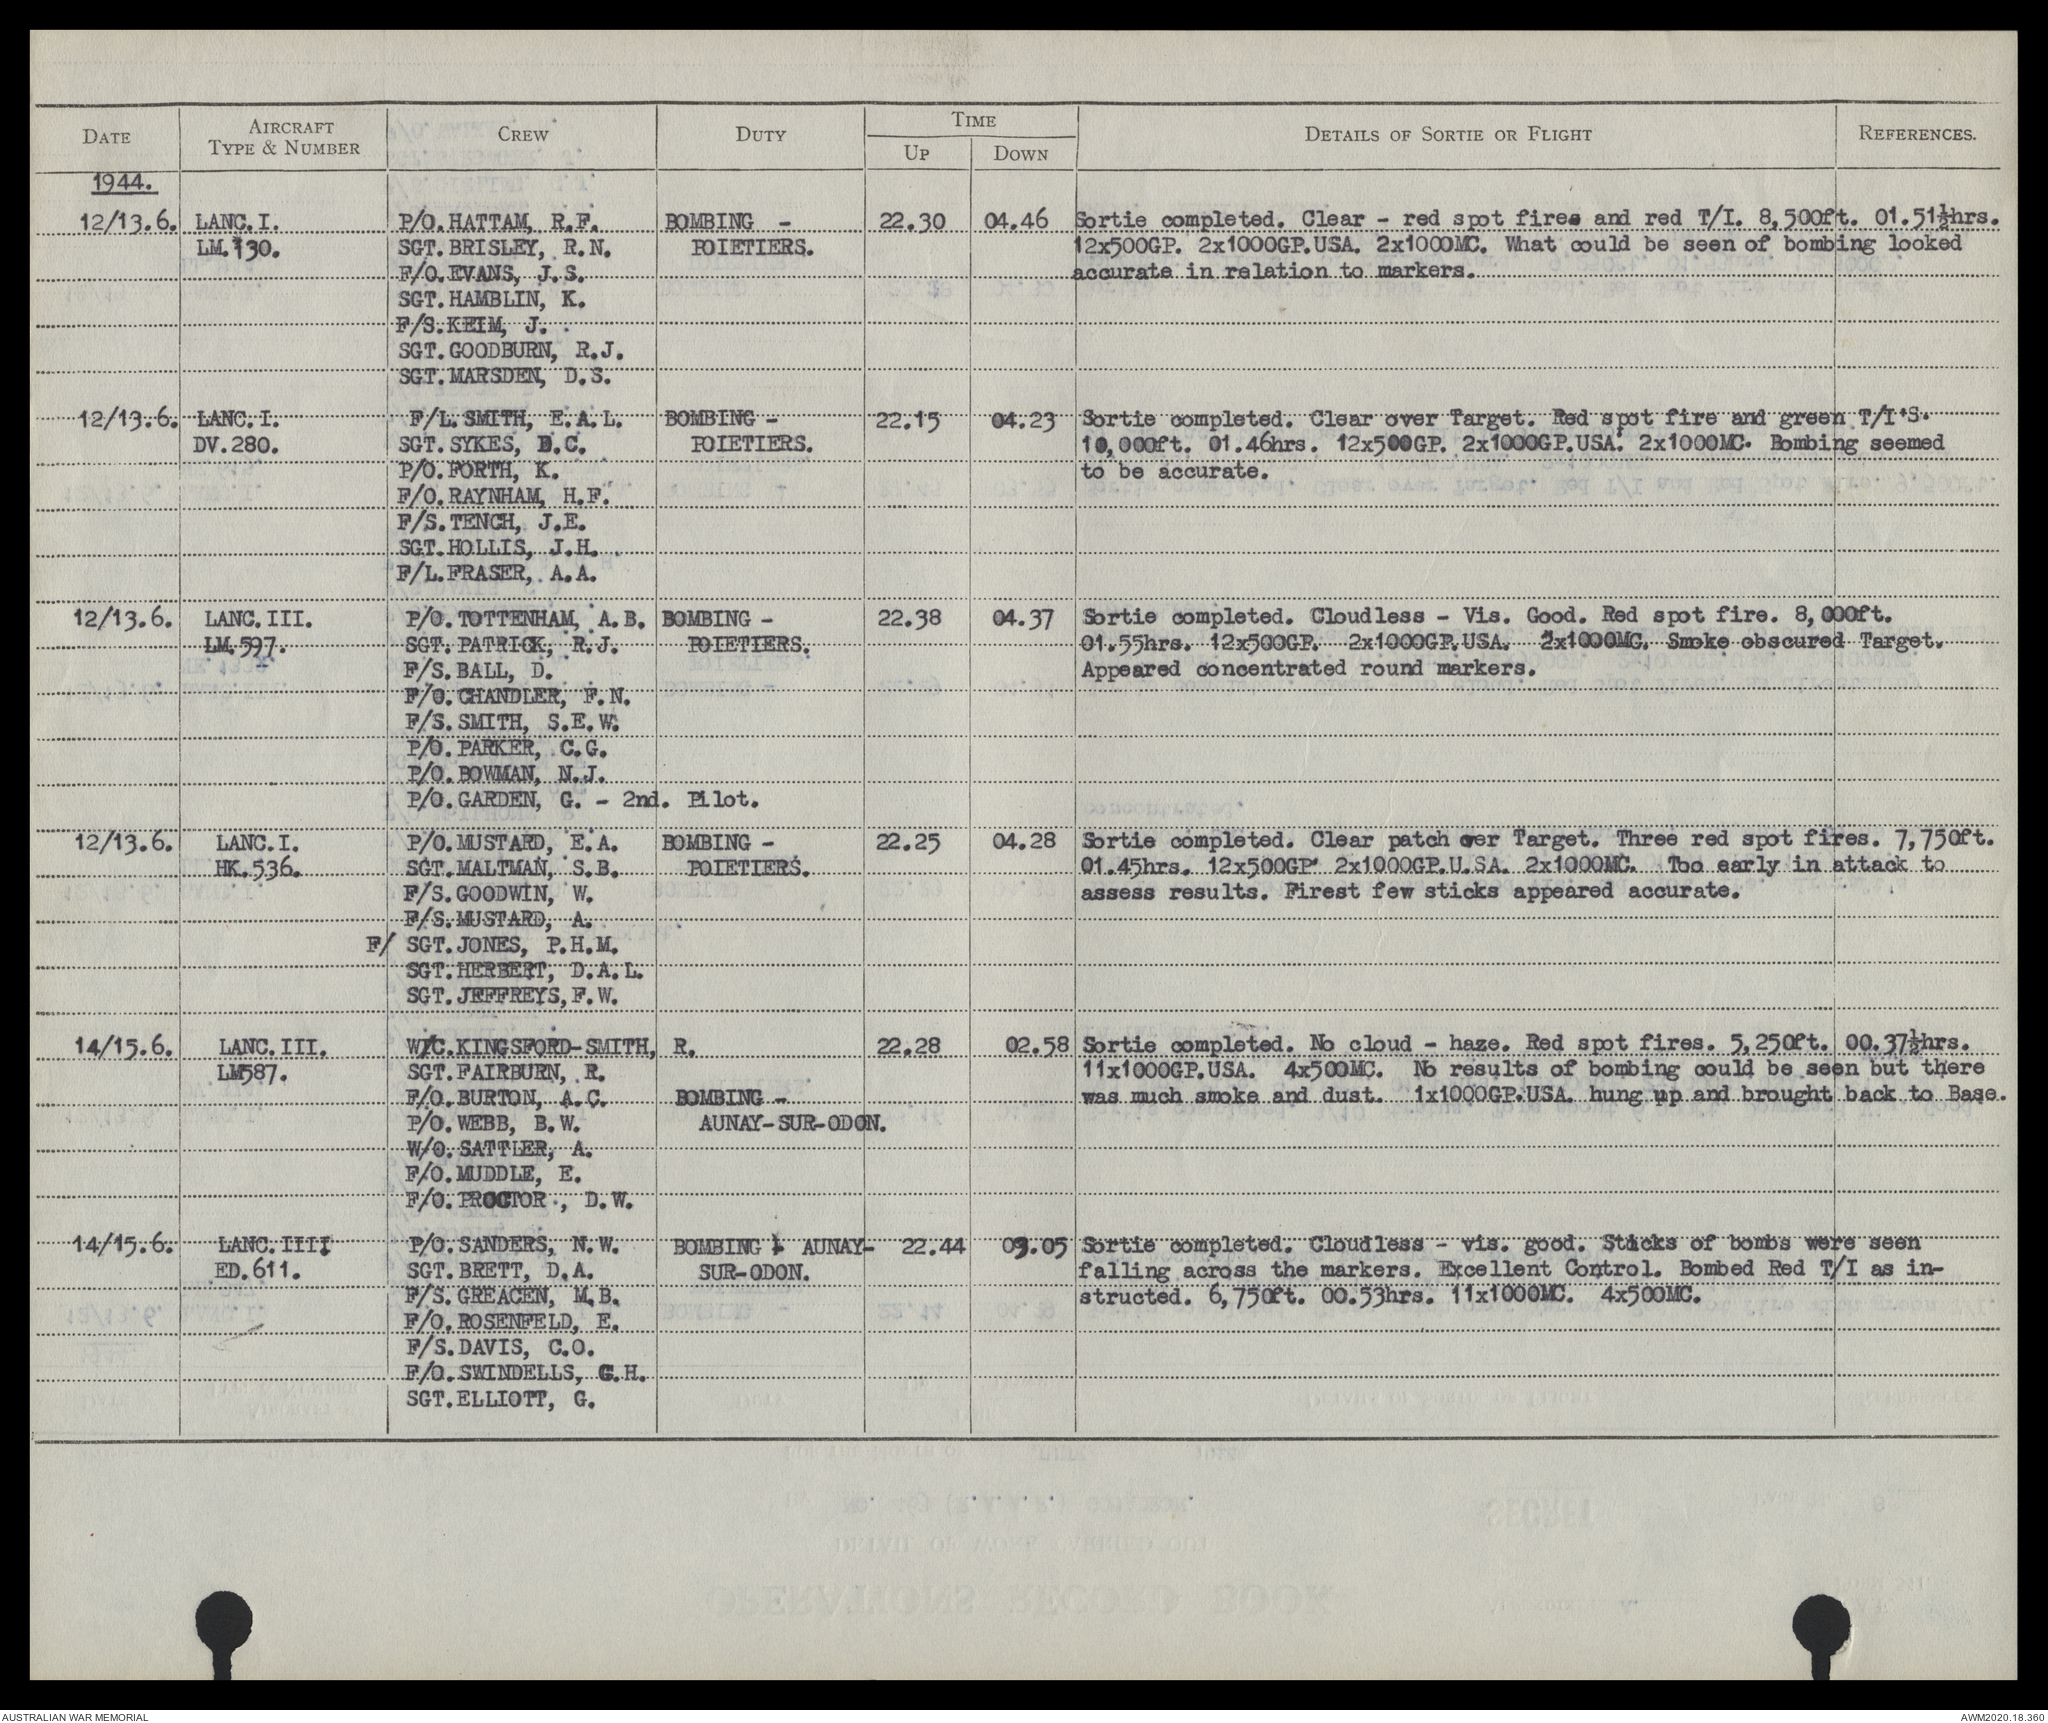 DATE AIRCRAFT TYPE & NUMBER CREW DUTY TIME UP DOWN DETAILS OF SORTIE OR FLIGHT REFERENCES.
1944.
12/13.6. LANC.I. P/O.HATTAM, R.F. BOMBING - 22.30 04.46 Sortie completed. Clear - red spot fires and red T/I. 8,500ft. 01.51½hrs.
LM.130. SGT.BRISLEY, R.N. POIETIERS. 12x500GP. 2x1000GP.USA. 2x1000MC. What could be seen of bombing looked
F/O.EVANS, J.S. accurate in relation to markers.
SGT.HAMBLIN, K.
F/S.KEIM, J.
SGT.GOODBURN, R.J.
SGT.MARSDEN, D.S.
12/13.6. LANC.I. F/L.SMITH, E.A.L. BOMBING - 22.15 04.23 Sortie completed. Clear over Target. Red spot fire and green T/I'S.
DV.280. SGT.SYKES, D.C. POIETIERS. 10,000ft. 01.46hrs. 12x500GP. 2x1000GP.USA. 2x1000MC. Bombing seemed
P/O.FORTH, K. to be accurate.
F/O.RAYNHAM, H.F.
F/S.TENCH, J.E.
SGT.HOLLIS, J.H.
F/L.FRASER, A.A.
12/13.6. LANC.III. P/O.TOTTENHAM, A.B. BOMBING - 22.38 04.37 Sortie completed. Cloudless - Vis. Good. Red spot fire. 8,000ft.
LM.597. SGT.PATRICK, R.J. POIETIERS. 01.55hrs. 12x500GP. 2x1000GP.USA. 2x1000MC. Smoke obscured Target.
F/S.BALL, D. Appeared concentrated round markers.
F/O.CHANDLER, F.N.
F/S.SMITH, S.E.W.
P/O.PARKER, C.G.
P/O.BOWMAN, N.J.
P/O.GARDEN, G. - 2nd. Pilot.
12/13.6. LANC.I. P/O.MUSTARD, E.A. BOMBING - 22.25 04.28 Sortie completed. Clear patch over Target. Three red spot fires. 7,750ft.
HK.536. SGT.MALTMAN, S.B. POIETIERS. 01.45hrs. 12x500GP 2x1000GP.U.SA. 2x1000MC. Too early in attack to
F/S.GOODWIN, W. assess results. Firest few sticks appeared accurate.
F/S.MUSTARD, A.
F/ SGT.JONES, P.H.M.
SGT.HERBERT, D.A.L.
SGT.JEFFREYS,F.W.
14/15.6. LANC.III. W/C.KINGSFORD-SMITH, R. 22.28 02.58 Sortie completed. No cloud - haze. Red spot fires. 5,250ft. 00.37½hrs.
LM587. SGT.FAIRBURN, R. 11x1000GP.USA. 4x500MC. No results of bombing could be seen but there
F/O.BURTON, A.C. BOMBING - was much smoke and dust. 1x1000GP.USA. hung up and brought back to Base.
P/O.WEBB, B.W. AUNAY-SUR-ODON.
W/O.SATTLER, A.
F/O.MUDDLE, E.
F/O.PROCTOR., D.W.
14/15.6. LANC.IIII P/O.SANDERS, N.W. BOMBING - AUNAY- 22.44 03.05 Sortie completed. Cloudless - vis. good. Sticks of bombs were seen
ED.611. SGT.BRETT, D.A. SUR-ODON. falling across the markers. Excellent Control. Bombed Red T/I as in-
F/S.GREACEN, M.B. structed. 6,750ft. 00.53hrs. 11x1000MC. 4x500MC.
F/O.ROSENFELD, E.
F/S.DAVIS, C.O.
F/O.SWINDELLS, G.H.
SGT.ELLIOTT, G.
AUSTRALIAN WAR MEMORIAL AWM2020.18.360